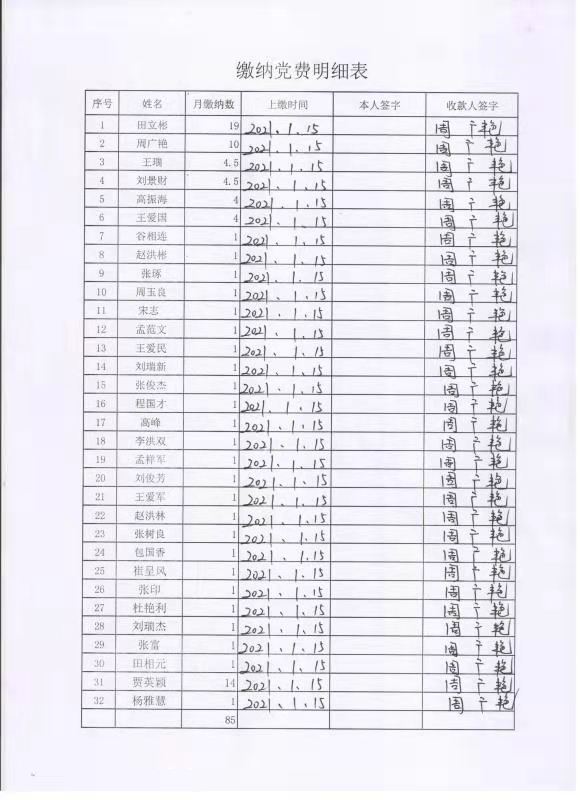 缴纳党费明细表
序号 姓名 月缴纳数 上缴时间 本人签字 收款人签字
1 田立彬 19 2021.1.15 周广艳
2 周广艳 10 2021.1.15 周广艳
3 王瑞 4.5 2021.1.15 周广艳
4 刘景财 4.5 2021.1.15 周广艳
5 高振海 4 2021.1.15 周广艳
6 王爱国 4 2021.1.15 周广艳
7 谷相连 1 2021.1.15 周广艳
8 赵洪彬 1 2021.1.15 周广艳
9 张琢 1 2021.1.15 周广艳
10 周玉良 1 2021.1.15 周广艳
11 宋志 1 2021.1.15 周广艳
12 孟范文 1 2021.1.15 周广艳
13 王爱民 1 2021.1.15 周广艳
14 刘瑞新 1 2021.1.15 周广艳
15 张俊杰 1 2021.1.15 周广艳
16 程国才 1 2021.1.15 周广艳
17 高峰 1 2021.1.15 周广艳
18 李洪双 1 2021.1.15 周广艳
19 孟祥军 1 2021.1.15 周广艳
20 刘俊芳 1 2021.1.15 周广艳
21 王爱军 1 2021.1.15 周广艳
22 赵洪林 1 2021.1.15 周广艳
23 张树良 1 2021.1.15 周广艳
24 包国香 1 2021.1.15 周广艳
25 崔呈凤 1 2021.1.15 周广艳
26 张印 1 2021.1.15 周广艳
27 杜艳利 1 2021.1.15 周广艳
28 刘瑞杰 1 2021.1.15 周广艳
29 张富 1 2021.1.15 周广艳
30 田相元 1 2021.1.15 周广艳
31 贾英颖 14 2021.1.15 周广艳
32 杨雅慧 1 2021.1.15 周广艳
85